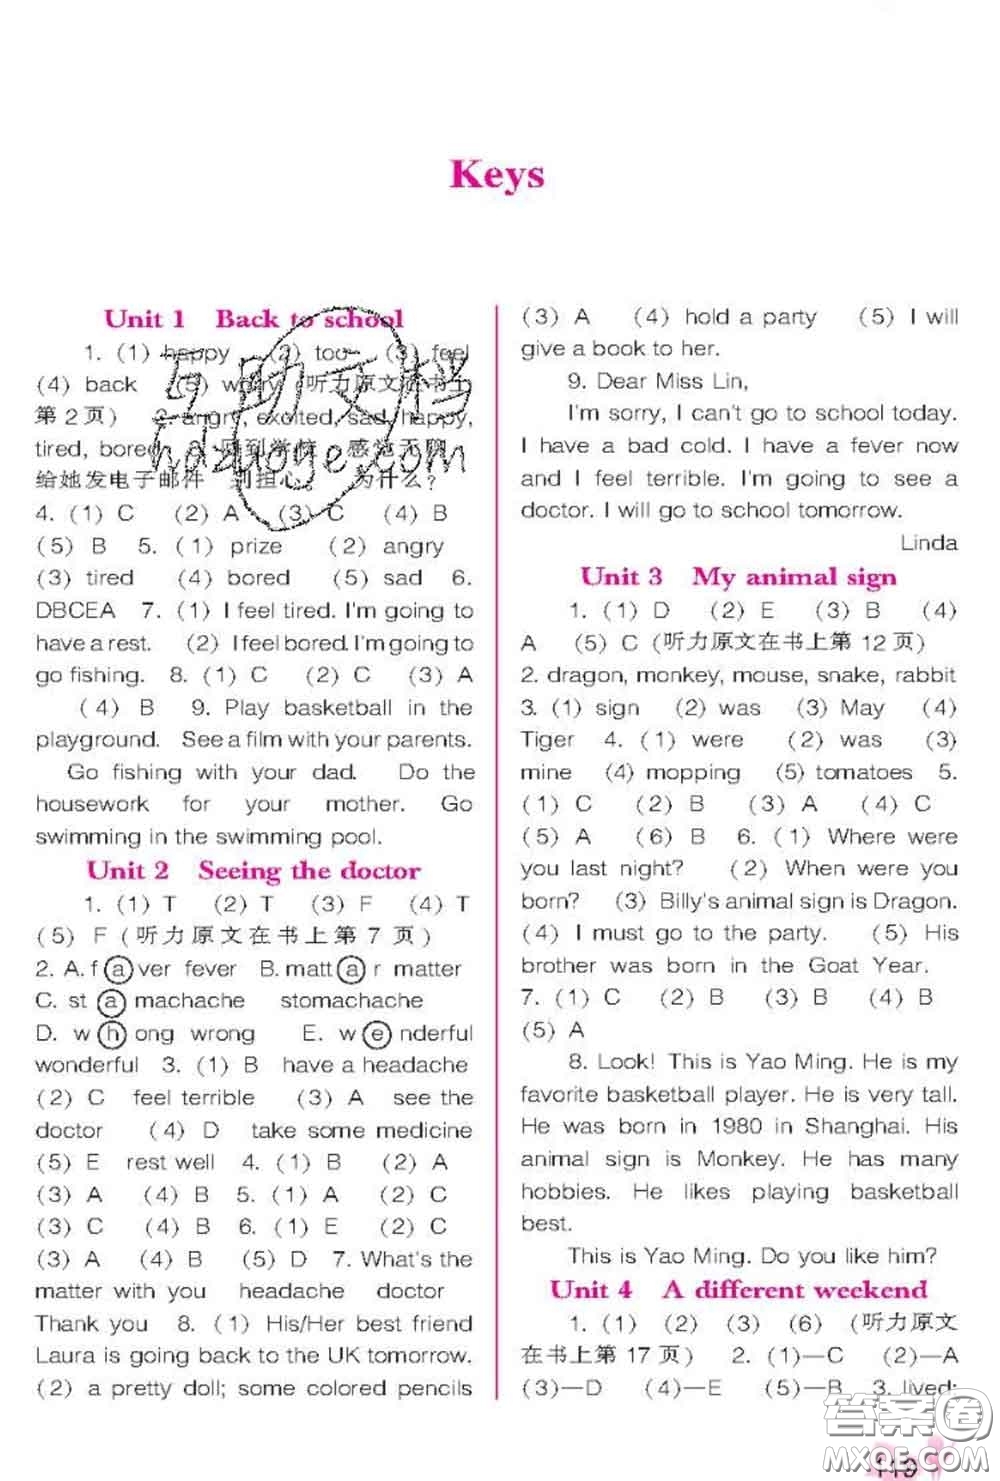 Keys
Unit 1 Back to school
1. (1) happy (2) too (3) feel
(4) back (5) worry (听力原文在书上
第2页) 2. angry, excited, sad, happy,
tired, bored 3. 回到学校 感觉无聊
给她发电子邮件 别担心。 为什么?
4. (1) C (2) A (3) C (4) B
(5) B 5. (1) prize (2) angry
(3) tired (4) bored (5) sad 6.
DBCEA 7. (1) I feel tired. I'm going to
have a rest. (2) I feel bored. I'm going to
go fishing. 8. (1) C (2) C (3) A
(4) B 9. Play basketball in the
playground. See a film with your parents.
Go fishing with your dad. Do the
housework for your mother. Go
swimming in the swimming pool.
Unit 2 Seeing the doctor
1. (1) T (2) T (3) F (4) T
(5) F (听力原文在书上第 7 页)
2. A. f a ver fever B. matt a r matter
C. st a machache stomachache
D. w h ong wrong E. w e nderful
wonderful 3. (1) B have a headache
(2) C feel terrible (3) A see the
doctor (4) D take some medicine
(5) E rest well 4. (1) B (2) A
(3) A (4) B 5. (1) A (2) C
(3) C (4) B 6. (1) E (2) C
(3) A (4) B (5) D 7. What's the
matter with you headache doctor
Thank you 8. (1) His/Her best friend
Laura is going back to the UK tomorrow.
(2) a pretty doll; some colored pencils
(3) A (4) hold a party (5) I will
give a book to her.
9. Dear Miss Lin,
I'm sorry, I can't go to school today.
I have a bad cold. I have a fever now
and I feel terrible. I'm going to see a
doctor. I will go to school tomorrow.
Linda
Unit 3 My animal sign
1. (1) D (2) E (3) B (4)
A (5) C (听力原文在书上第 12 页)
2. dragon, monkey, mouse, snake, rabbit
3. (1) sign (2) was (3) May (4)
Tiger 4. (1) were (2) was (3)
mine (4) mopping (5) tomatoes 5.
(1) C (2) B (3) A (4) C
(5) A (6) B 6. (1) Where were
you last night? (2) When were you
born? (3) Billy's animal sign is Dragon.
(4) I must go to the party. (5) His
brother was born in the Goat Year.
7. (1) C (2) B (3) B (4) B
(5) A
8. Look! This is Yao Ming. He is my
favorite basketball player. He is very tall.
He was born in 1980 in Shanghai. His
animal sign is Monkey. He has many
hobbies. He likes playing basketball
best.
This is Yao Ming. Do you like him?
Unit 4 A different weekend
1. (1) (2) (3) (6) (听力原文
在书上第 17 页) 2. (1)—C (2)—A
(3)—D (4)—E (5)—B 3. lived;
119
互助文档
hdzuoye.com
答案圈
MXQE.COM